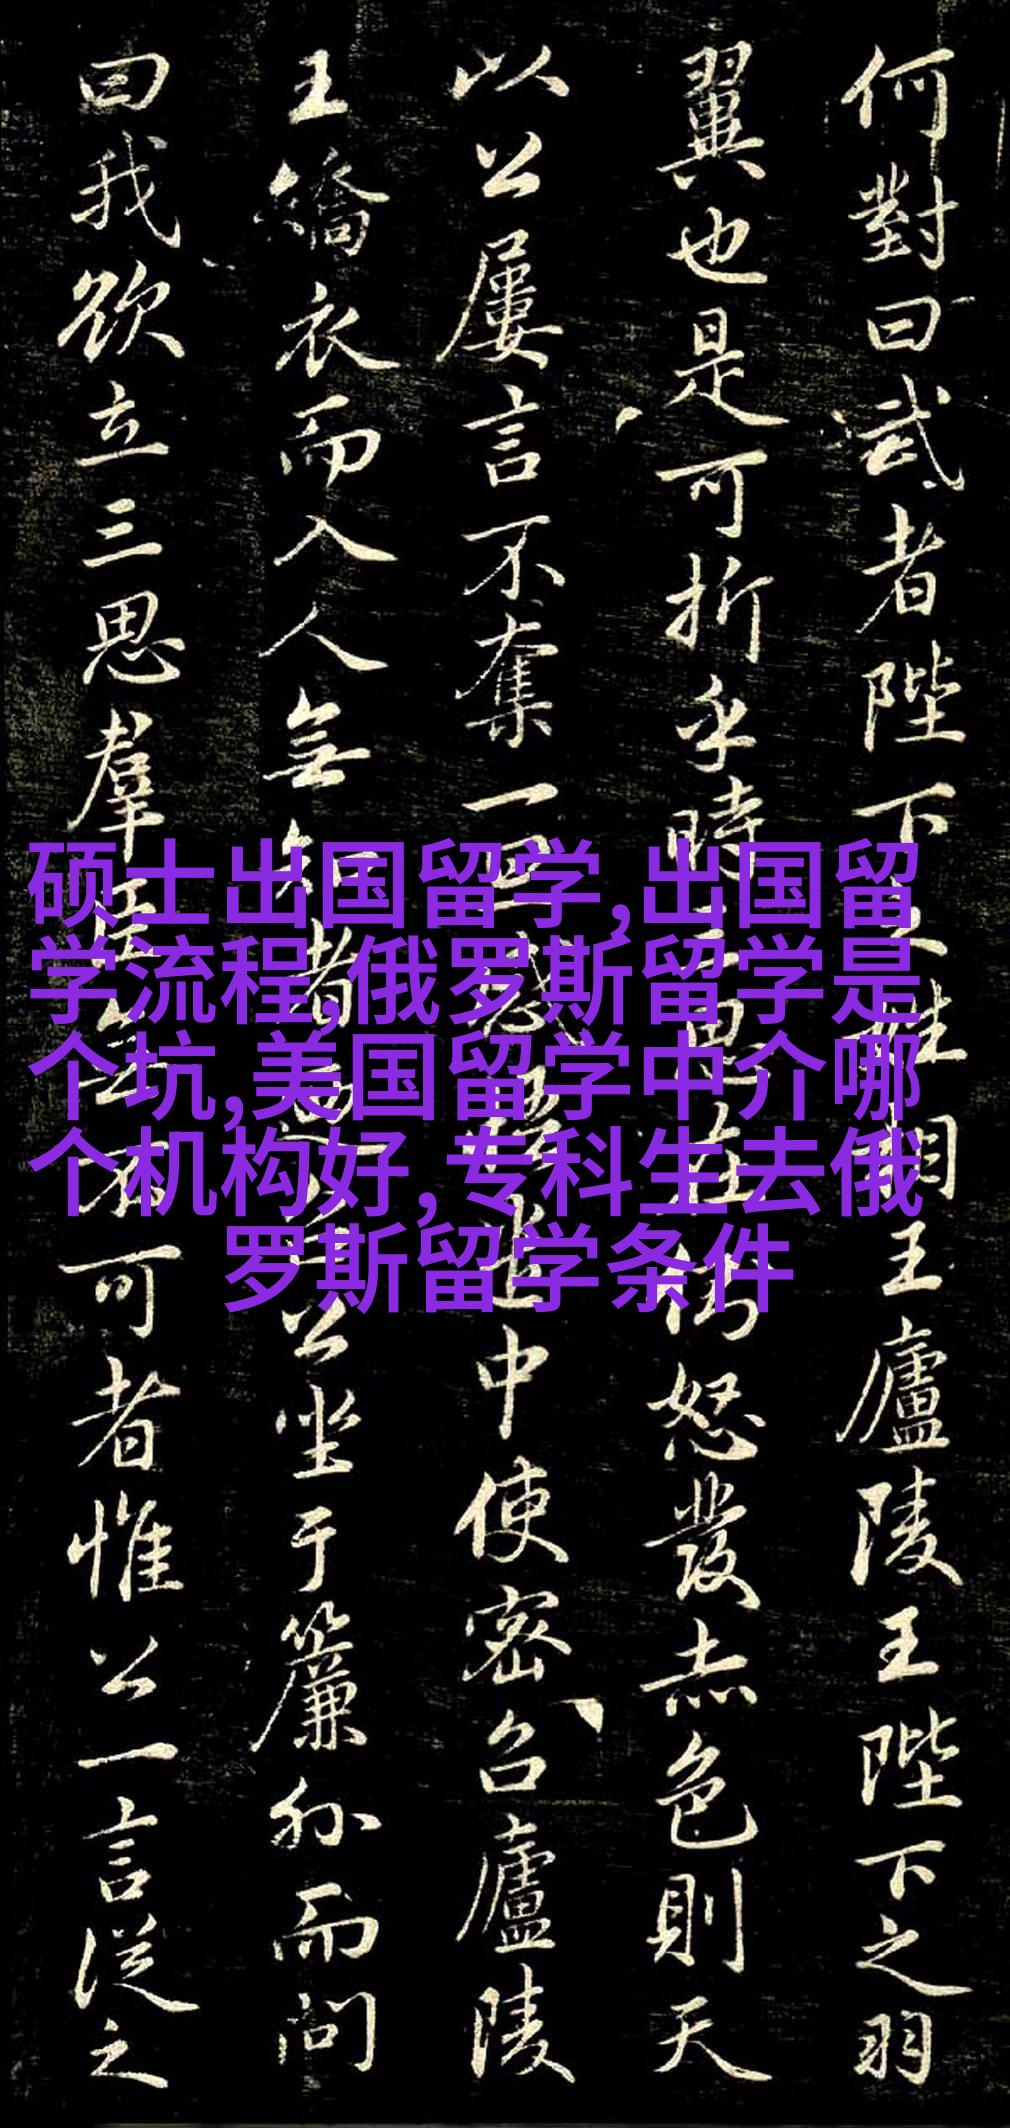 何對曰武者陛下之姓相王廬陵王陛下之羽
翼也是可折乎時三思在側怒發赤色則天
以公屢言不奪一旦感中使密召廬陵
王矯衣而入人無知者公坐于簾外而問
曰我欲立三思羣臣不可者惟公一言從之
硕士出国留学,出国留
学流程,俄罗斯留学是
个坑,美国留学中介哪
个机构好,专科生去俄
罗斯留学条件